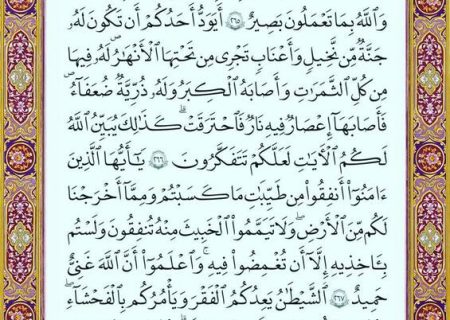 وَٱللَّهُ بِمَا تَعۡمَلُونَ بَصِيرٌ ٢٦٥ أَيَوَدُّ أَحَدُكُمۡ أَن تَكُونَ لَهُۥ
جَنَّةٞ مِّن نَّخِيلٖ وَأَعۡنَابٖ تَجۡرِي مِن تَحۡتِهَا ٱلۡأَنۡهَٰرُ لَهُۥ فِيهَا
مِن كُلِّ ٱلثَّمَرَٰتِ وَأَصَابَهُ ٱلۡكِبَرُ وَلَهُۥ ذُرِّيَّةٞ ضُعَفَآءُ
فَأَصَابَهَآ إِعۡصَارٞ فِيهِ نَارٞ فَٱحۡتَرَقَتۡۗ كَذَٰلِكَ يُبَيِّنُ ٱللَّهُ
لَكُمُ ٱلۡأٓيَٰتِ لَعَلَّكُمۡ تَتَفَكَّرُونَ ٢٦٦ يَٰٓأَيُّهَا ٱلَّذِينَ
ءَامَنُوٓاْ أَنفِقُواْ مِن طَيِّبَٰتِ مَا كَسَبۡتُمۡ وَمِمَّآ أَخۡرَجۡنَا
لَكُم مِّنَ ٱلۡأَرۡضِۖ وَلَا تَيَمَّمُواْ ٱلۡخَبِيثَ مِنۡهُ تُنفِقُونَ وَلَسۡتُم
بِـَٔاخِذِيهِ إِلَّآ أَن تُغۡمِضُواْ فِيهِۚ وَٱعۡلَمُوٓاْ أَنَّ ٱللَّهَ غَنِيٌّ
حَمِيدٌ ٢٦٧ ٱلشَّيۡطَٰنُ يَعِدُكُمُ ٱلۡفَقۡرَ وَيَأۡمُرُكُم بِٱلۡفَحۡشَآءِۖ